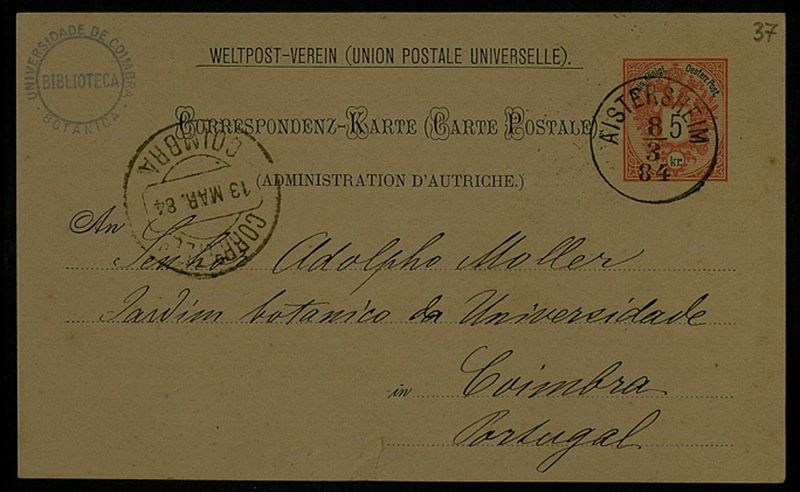 37
UNIVERSIDADE DE COIMBRA
BIBLIOTECA
BOTANICA
WELTPOST-VEREIN (UNION POSTALE UNIVERSELLE).
Oesterr. Post.
5
kr.
AISTERSHEIM
8
3
84
CORRESPONDENZ-KARTE (CARTE POSTALE)
(ADMINISTRATION D'AUTRICHE.)
COIMBRA
13 MAR. 84
An
Senhor Adolpho Moller
Jardim botanico da Universidade
in Coimbra
Portugal